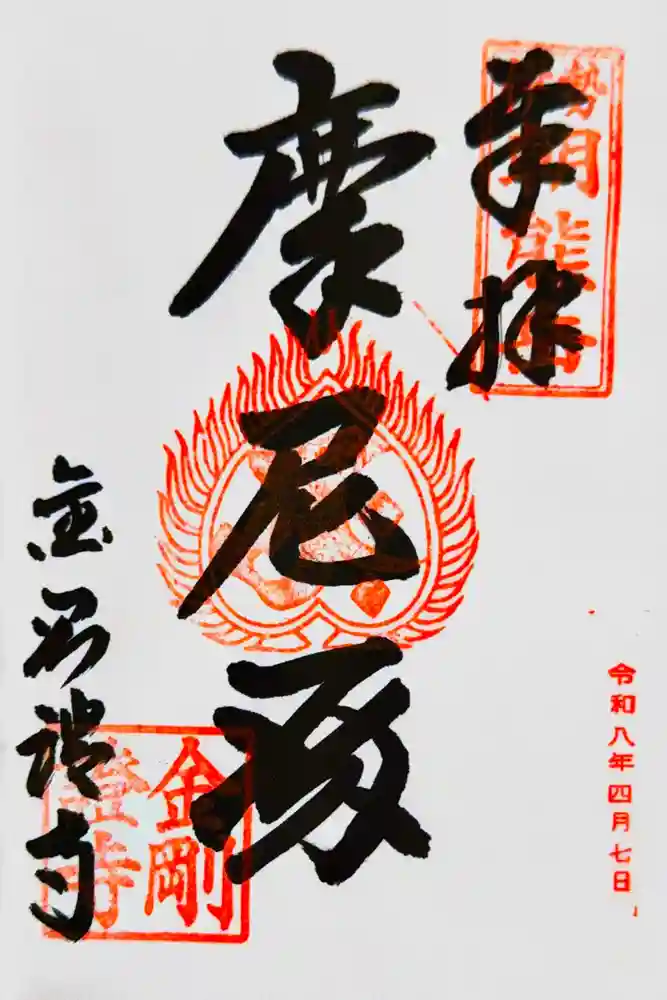 奉拝
勢
朝熊岳
摩尼殿
金剛證寺
金剛
證寺
令和八年四月七日